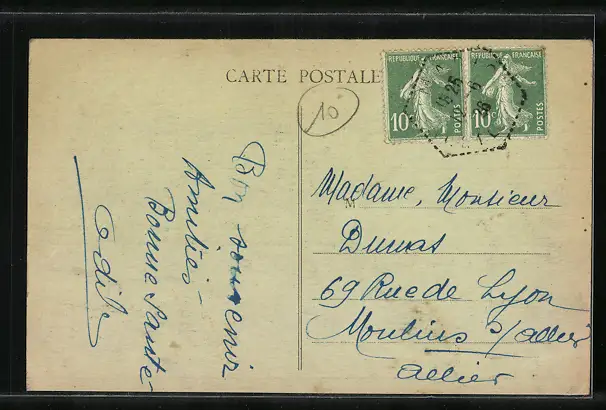 CARTE POSTALE
REPUBLIQUE FRANÇAISE
10c
POSTES
REPUBLIQUE FRANÇAISE
10c
POSTES
10
Bon souvenir
Amitiés -
Bonne Santé
Odile
Madame, Monsieur
Dumas
69 Rue de Lyon
Moulins s/ allier
allier